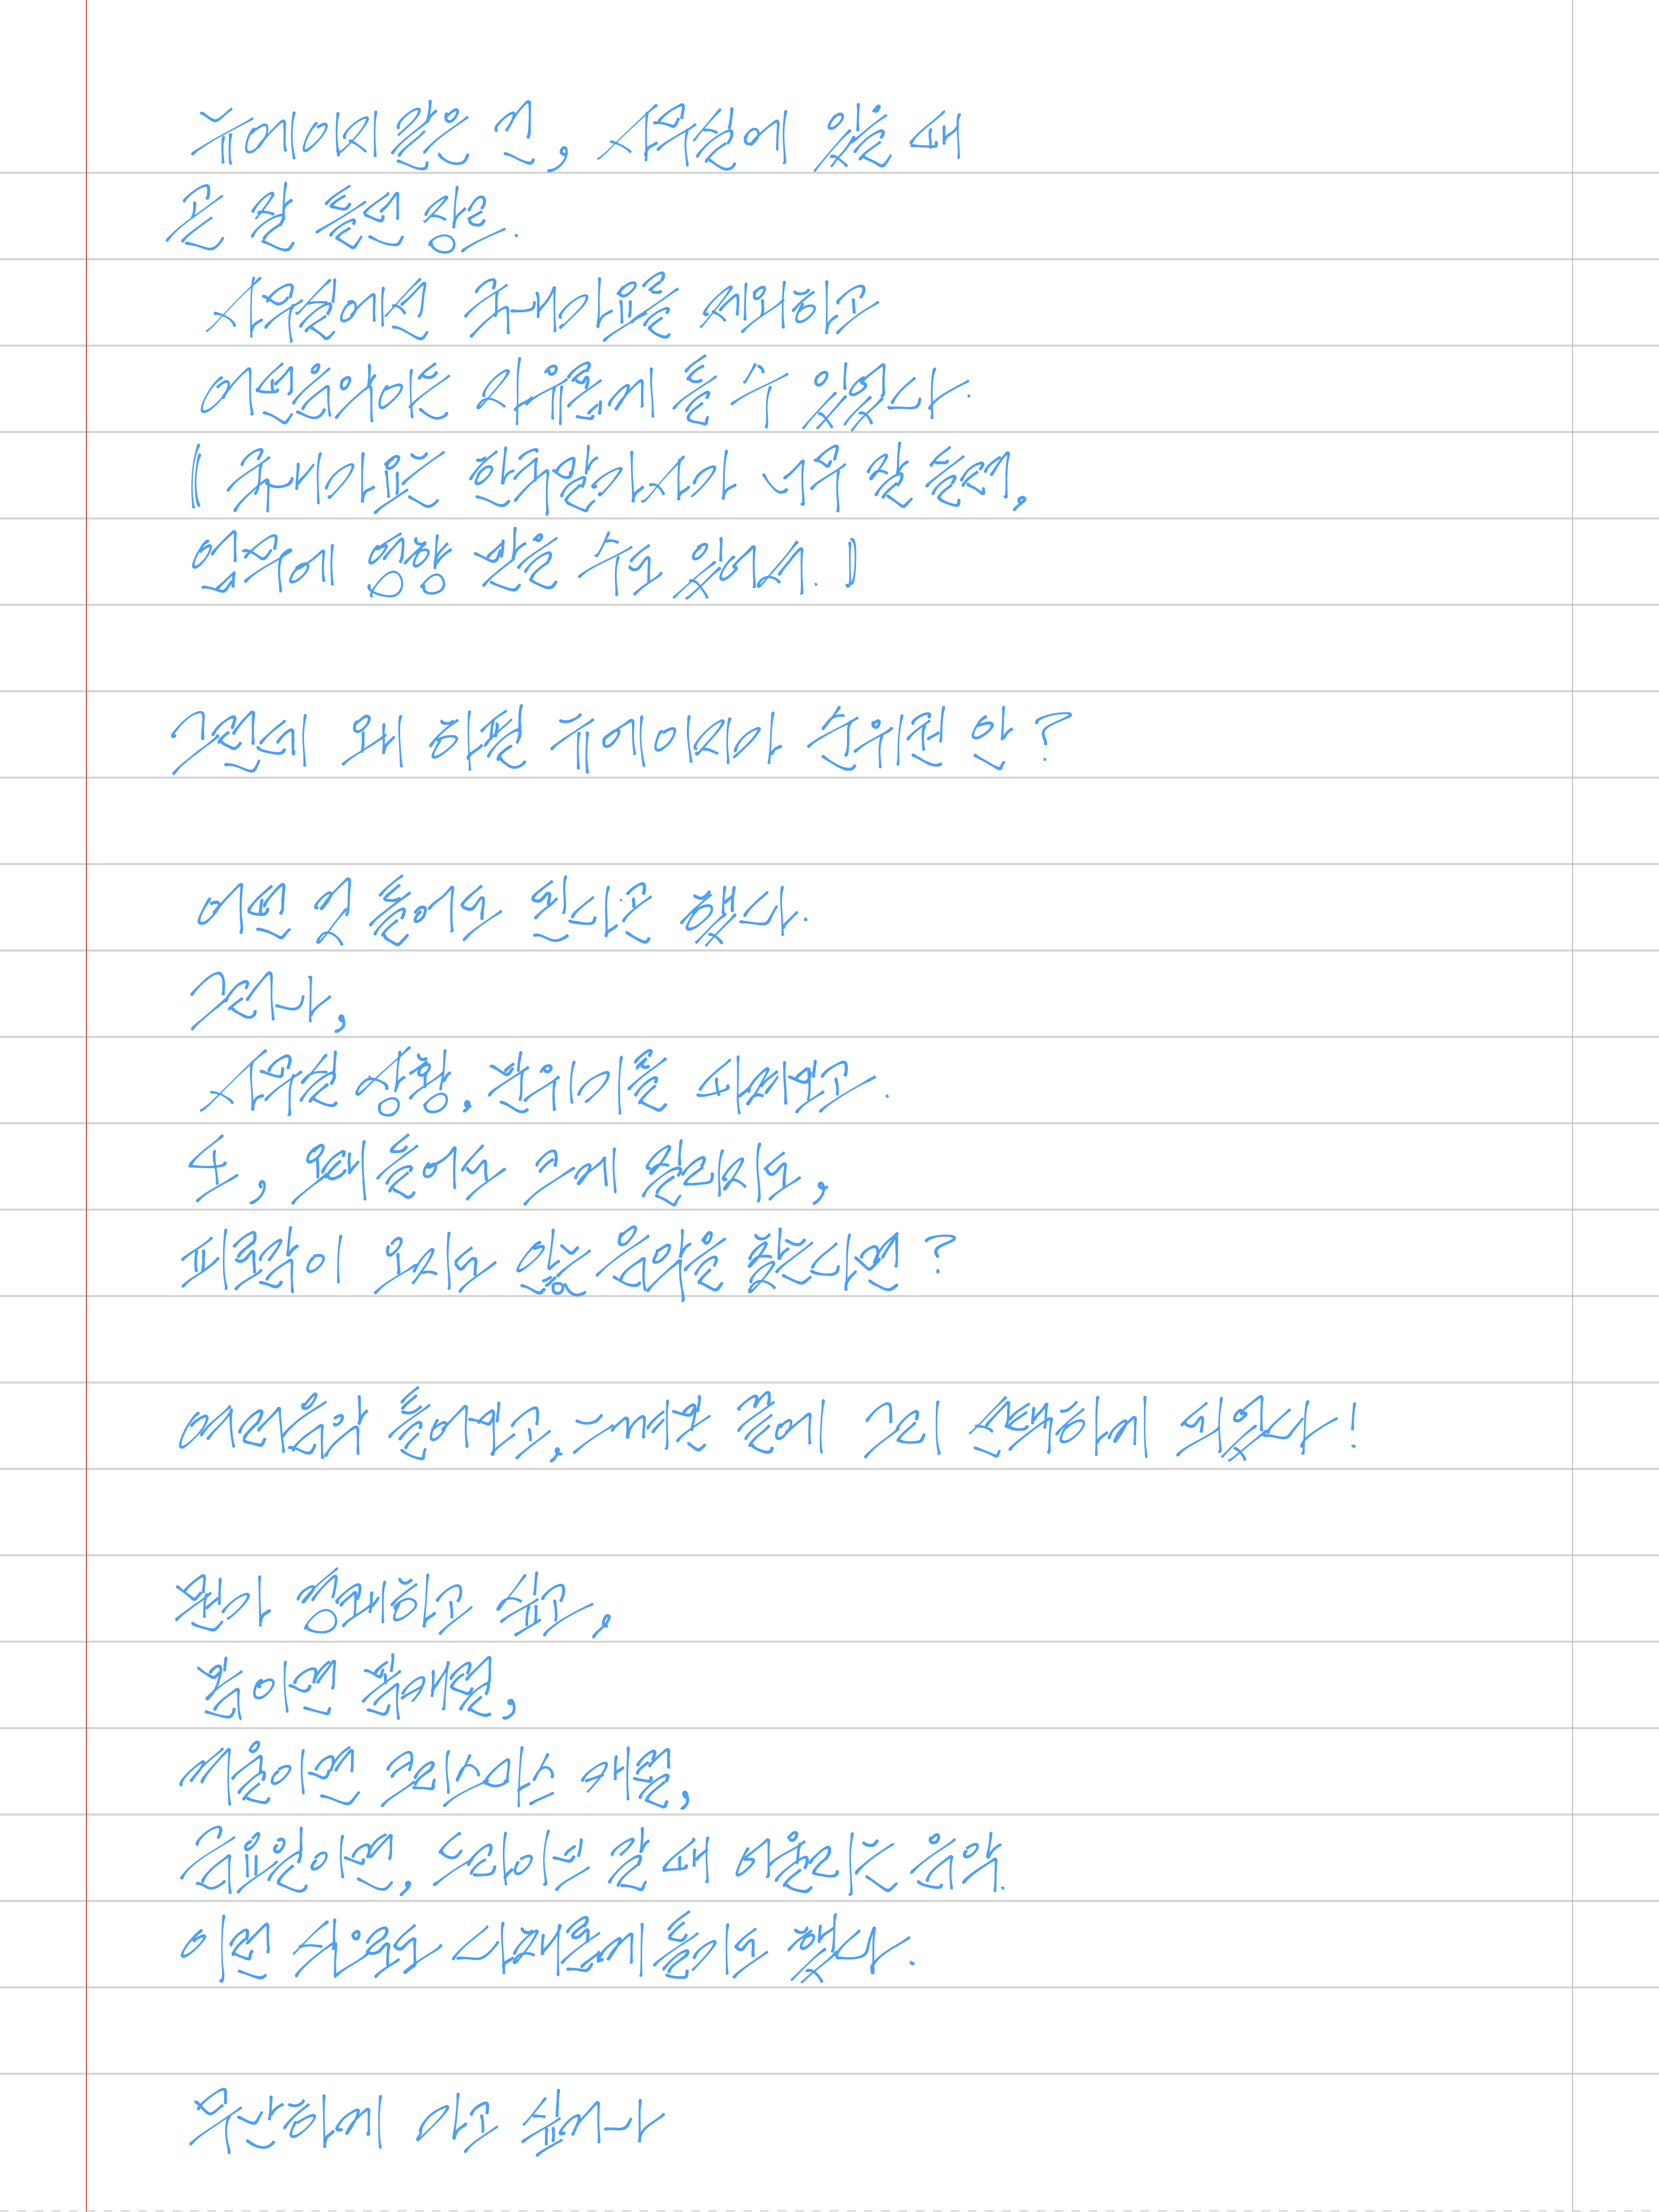 뉴에이지 같은 건, 사무실에 있을 때
곧 잘 듣던 장르.
사무실에선 국내가요를 제외하고
어떤음악이든 자유롭게 들을 수 있었다.
( 국내가요는 한국말가사가 너무 잘 들려,
업무에 영향 받을 수도 있어서. )
그런데 왜 하필 뉴에이지가 순위권 안?
어떤 것 들어도 된다곤 했다.
그러나,
사무실 상황. 분위기를 따라고.
또, 오래 들어도 크게 질리지도,
피곤이 오지도 않는 음악을 찾는다면?
여러음악 들어보고, 나에겐 좀더 그리 선택하게 되었다!
뭔가 경쾌하고 싶고,
봄이면 봄캐럴,
겨울이면 크리스마스 캐럴,
금요일이면, 드라이브 갈 때 어울리는 음악.
이런 식으로도 다채롭게 들어도 봤다.
우산하게 가고 싶거나